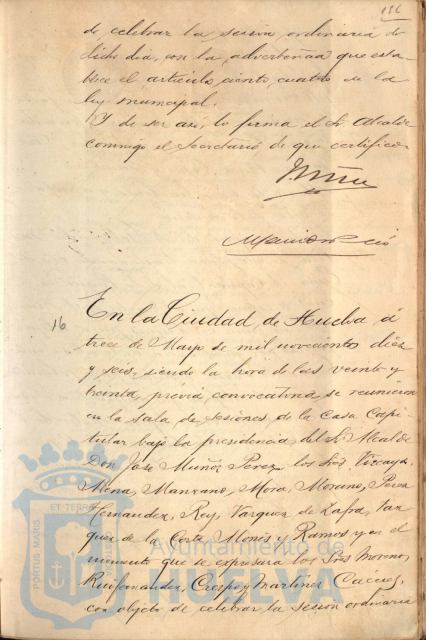 de celebrar la sesión ordinaria de
dicho dia, con la advertencia que esta-
blece el artículo ciento cuatro de la
ley municipal.
Y de ser así, lo firma el Sr. Alcalde
conmigo el Secretario de que certifico
16
En la Ciudad de Huelva á
trece de Mayo de mil novecientos diez
y seis, siendo la hora de las veinte y
treinta, prévia convocatoria se reunieron
en la sala de sesiones de la Casa Capi-
tular bajo la presidencia del Sr. Alcalde
Don José Muñoz Perez, los Sres Vizcaya,
Mena, Manzano, Mora, Moreno, Perez
Hernandez, Rey, Vazquez de Zafra, Vaz
quez de la Corte, Monis y Ramos y en el
momento que se expresara los Sres Moreno,
Ruifernandez, Crespo y Martinez
con objeto de celebrar la sesión ordinaria
PORTUS MARIS ET TERRAE
Ayuntamiento de
HUELVA